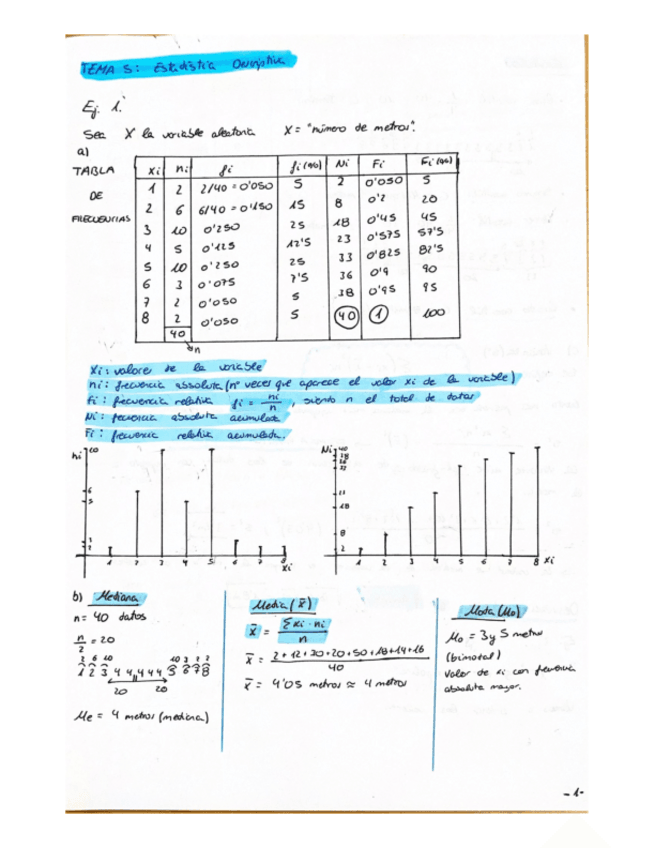 TEMA 5: Estadística Descriptiva
Ej. 1.
Sea X la variable aleatoria X = "número de metros".
a)
TABLA DE FRECUENCIAS
xi ni fi fi(%) Ni Fi Fi(%)
1 2 2/40 = 0'050 5 2 0'050 5
2 6 6/40 = 0'150 15 8 0'2 20
3 10 0'250 25 18 0'45 45
4 5 0'125 12'5 23 0'575 57'5
5 10 0'250 25 33 0'825 82'5
6 3 0'075 7'5 36 0'9 90
7 2 0'050 5 38 0'95 95
8 2 0'050 5 40 1 100
40
n
xi: valores de la variable
ni: frecuencia absoluta (nº veces que aparece el valor xi de la variable)
fi: frecuencia relativa fi = ni/n, siendo n el total de datos
Ni: frecuencia absoluta acumulada
Fi: frecuencia relativa acumulada.
ni 10 6 5
1 2 3 4 5 6 7 8 xi
Ni 40 38
18
8
2
1 2 3 4 5 6 7 8 xi
b) Mediana
n = 40 datos
n/2 = 20
2 6 10 10 3 2 2
1 2 3 4 4 4 4 4 5 6 7 8
20 20
Me = 4 metros (mediana)
Media (x̄)
x̄ = Σxi·ni / n
x̄ = 2+12+30+20+50+18+14+16 / 40
x̄ = 4'05 metros ≈ 4 metros
Moda (Mo)
Mo = 3 y 5 metros
(bimodal)
Valor de xi con frecuencia
absoluta mayor.
-1-